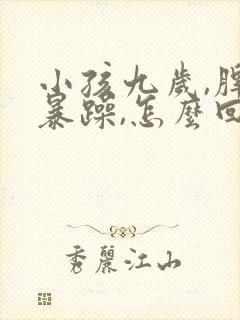 小孩九歲,脾
暴躁,怎麼回
秀麗江山